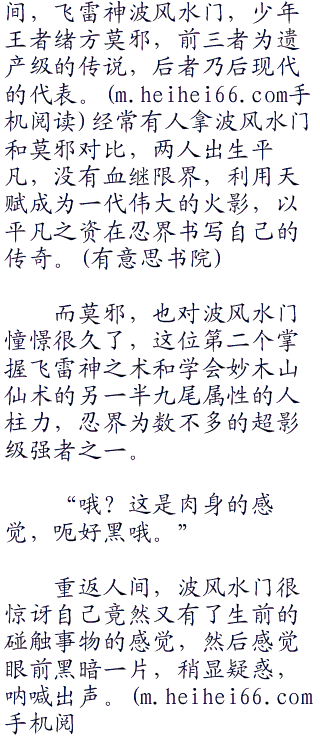 间，飞雷神波风水门，少年
王者绪方莫邪，前三者为遗
产级的传说，后者乃后现代
的代表。(m.heihei66.com手
机阅读)经常有人拿波风水门
和莫邪对比，两人出生平
凡，没有血继限界，利用天
赋成为一代伟大的火影，以
平凡之资在忍界书写自己的
传奇。(有意思书院)
而莫邪，也对波风水门
憧憬很久了，这位第二个掌
握飞雷神之术和学会妙木山
仙术的另一半九尾属性的人
柱力，忍界为数不多的超影
级强者之一。
“哦？这是肉身的感
觉，呃好黑哦。”
重返人间，波风水门很
惊讶自己竟然又有了生前的
碰触事物的感觉，然后感觉
眼前黑暗一片，稍显疑惑，
呐喊出声。(m.heihei66.com
手机阅